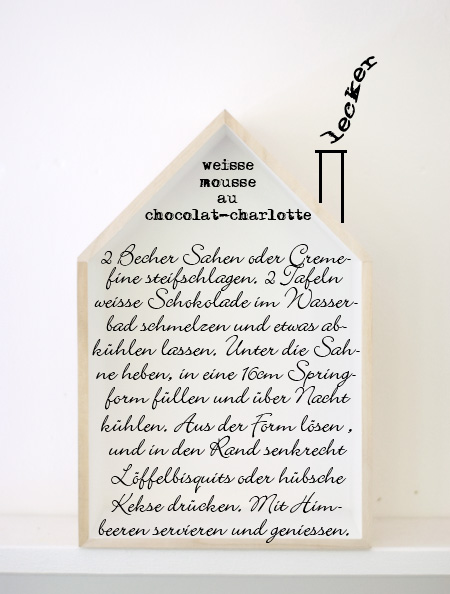 lecker
weisse
mousse
au
chocolat-charlotte
2 Becher Sahen oder Creme-
fine steifschlagen. 2 Tafeln
weisse Schokolade im Wasser-
bad schmelzen und etwas ab-
kühlen lassen. Unter die Sah-
ne heben, in eine 16cm Spring-
form füllen und über Nacht
kühlen. Aus der Form lösen,
und in den Rand senkrecht
Löffelbisquits oder hübsche
Kekse drücken. Mit Him-
beeren servieren und geniessen.